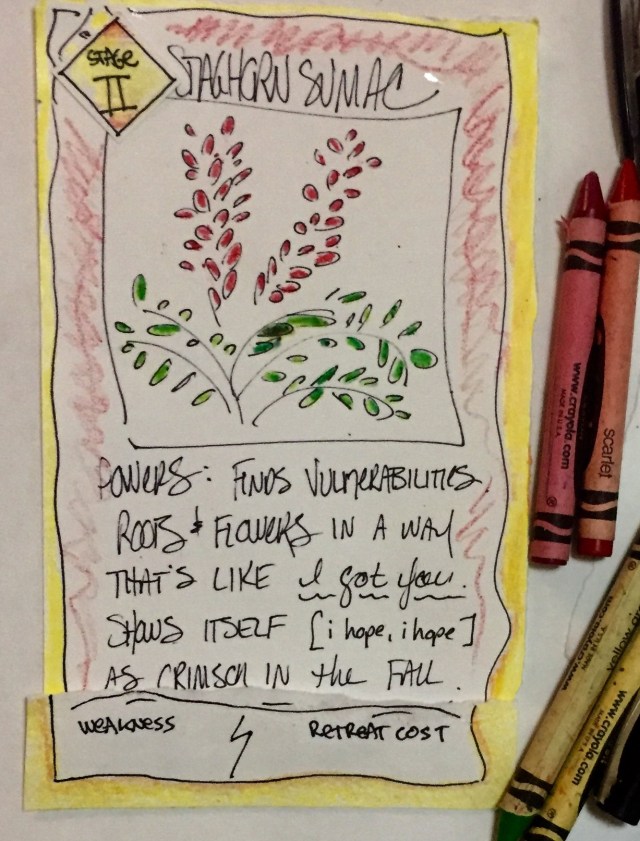 STAGE
II
STAGHORN SUMAC
POWERS: FINDS VULNERABILITIES
ROOTS & FLOWERS IN A WAY
THAT'S LIKE I got you.
SHOWS ITSELF [i hope, i hope]
AS CRIMSON IN the FALL.
WEAKNESS
RETREAT COST
www.crayola.com
MADE IN U.S.A.
scarlet
www.crayola.com